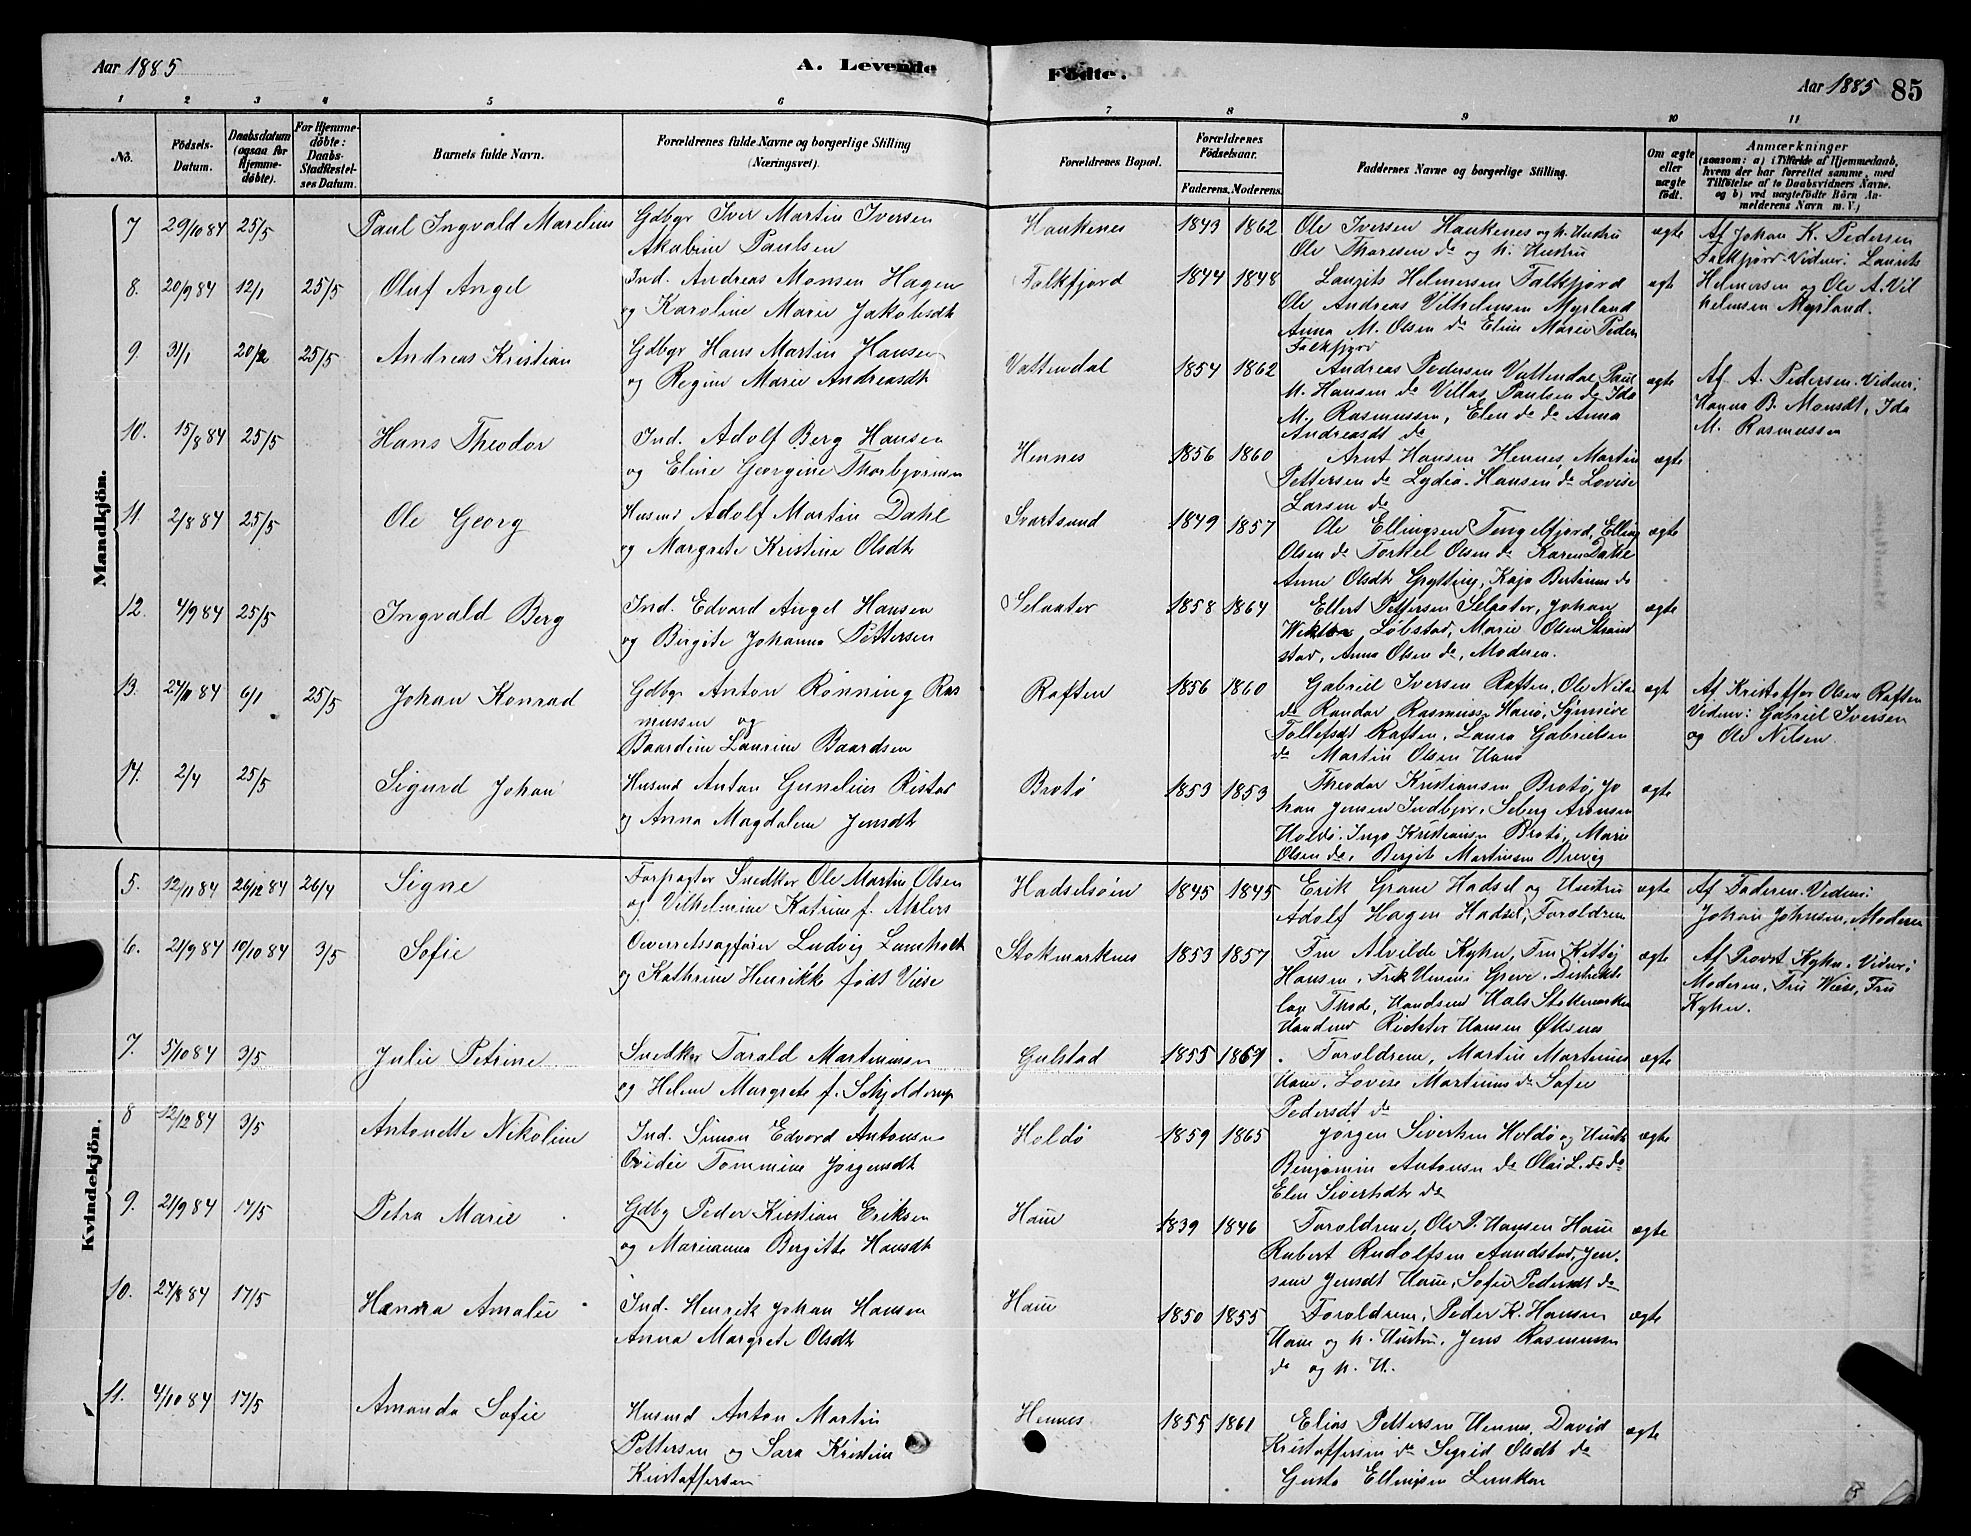 Aar 1885 A. Levende Födte. Aar 1885 85
1 2 3 4 5 6 7 8 9 10 11
No. Födsels-Datum. Daabsdatum (ogsaa for Hjemmedöbte). For Hjemmedöbte: Daabs-Stadfæstelses Datum. Barnets fulde Navn. Forældrenes fulde Navne og borgerlige Stilling (Næringsvei). Forældrenes Bopæl. Forældrenes Födselsaar. Faderens. Moderens. Faddernes Navne og borgerlige Stilling. Om ægte eller uægte födt. Anmærkninger (saasom: a) i Tilfælde af Hjemmedaab, hvem der har forrettet samme, med Tilföielse af to Daabsvidners Navne, og b) ved uægtefödte Börn Anmelderens Navn m. V.)
Mandkjön.
7 29/10 84 25/5 Paul Ingvald Marelius Gdbgr Iver Martin Iversen Haukenes 1843 1862 Ole Iversen Haukenes og h. Hustru ægte Af Johan K. Pedersen
Akabine Paulsen Ole Thoresen do og h. Hustru Falkfjord. Vidner: Laurits
8. 20/9 84 12/1 25/5 Oluf Angel Ind. Andreas Monsen Hagen Falkfjord 1844 1848 Laurits Helmersen Falkfjord ægte Helmersen og Ole A. Vil
og Karoline Marie Jakobsdt Ole Andreas Vilhelmsen Myrland helmsen Myrland.
Anna M. Olsen do Eline Marie Peder
Falkfjord
9. 31/1 20/2 25/5 Andreas Kristian Gdbgr Hans Martin Hansen Vattendal 1854 1862 Andreas Pedersen Vattendal, Paul ægte Af A. Pedersen. Vidner:
og Regine Marie Andreasdt M. Hansen do Villas Paulsen do Ida Hanna B. Monsdt, Ida
M. Rasmussen, Elen do do Anna M. Rasmussen
Andreasdt do
10. 15/8 84 25/5 Hans Theodor Ind. Adolf Berg Hansen Hennes 1856 1860 Arnt Hansen Hennes, Martin ægte
og Eline Georgine Thorbjørnsen Pettersen do Lydia Hansen do Lovise
Larsen do
11. 2/8 84 25/5 Ole Georg Husmd Adolf Martin Dahl Svartsund 1849 1857 Ole Ellingsen Tengelfjord, Elling ægte
og Margrete Kristine Olsdt Olsen do Torkel Olsen do Karen Dahl
Anne Olsdt Grytting, Kaja do
12. 4/9 84 25/5 Ingvald Berg Ind. Edvard Angel Hansen Selaater 1858 1864 Ellert Pettersen Selaater, Johan ægte
og Birgite Johanna Pettersen Løbstad, Marie Olsen Strand
stad, Anna Olsen do, Moderen.
13. 24/11 84 6/1 25/5 Johan Konrad Gdbgr Anton Rønning Ras Raften 1856 1860 Gabriel Iversen Raften, Ole Nils ægte Af Kristoffer Olsen Raften
mussen og do Randar Rasmussen Hanø, Synnøve Vidner: Gabriel Iversen
Baardine Laurine Baardsen Tollefsdt Raften, Laura Gabrielsen og Ole Nilsen.
do Martin Olsen Hanø
14. 2/4 25/5 Sigurd Johan Husmd Anton Gunelius Ristad Brotø 1853 1853 Theodor Kristiansen Brotø, Jo ægte
og Anna Magdalene Jensdt han Jensen Indbjor, Seberg Aronsen
Holdø. Inga Kristiansen Brotø, Marie
Olsen do, Bergite Martinsen Breveg
Kvindekjön.
5. 12/11 84 26/12 84 26/4 Signe Forpagter Snedker Ole Martin Olsen Hadseløen 1845 1845 Erik Grane Hadsel og Hustru ægte Af Faderen. Vidner:
og Vilhelmine Katrine f. Ahlers Adolf Hagen Hadsel, Foreldrene Johan Johnsen, Moderen
6. 21/9 84 19/10 84 3/5 Sofie Overretssagfører Ludvig Lumholt Stokmarknes 1853 1857 Fru Alvilde Kyhn, Fru Kitty ægte Af Provst Kyhn. Vidner:
og Kathrine Henrikke født Wiese Hansen, Frk Greve, Distrikts Moderen, Fru Wiese, Fru
læge Thode, Handsmd Hals Stokmarknes Kyhn.
Handsmd Richter Hansen Øksnes
7. 5/10 84 3/5 Julie Petrine Snedker Tarald Martinusen Gulstad 1855 1861 Foreldrene, Martin Martinus ægte
og Helene Margrete f. Schjelderup Haue, Lovise Martinus do Sofie
Pedersdt do
8 12/12 84 3/5 Antonette Nikoline Ind. Simon Edvard Antonsen Holdø 1859 1865 Jørgen Sivertsen Holdø og Hustr ægte
Ovidie Tommine Jørgensdt Benjamin Antonsn do Olai L. do do
Elen Sivertsdt do
9. 21/9 84 17/5 Petra Marie Gdbg Peder Kristian Eriksen Haue 1839 1846 Foreldrene, Ole P. Hansen Haue ægte
og Marianna Bergitte Hansdt Rubert Rudolfsen Aundstad, Jen.
sine Jensdt Haue, Sofie Pedersdt do
10. 24/8 84 17/5 Hanna Amalie Ind. Henrik Johan Hansen Haue 1850 1855 Foreldrene, Peder K. Hansen ægte
Anna Margrete Olsdt Haue og h. Hustru, Jens Rasmussen
do og h. H.
11. 4/10 84 17/5 Amanda Sofie Husmd Anton Martin Hennes 1855 1861 Elias Pettersen Hennes, David ægte
Pettersen og Sara Kristine Kristoffersen do Sigrid Olsdt do
Kristoffersen Gusta Ellingsen